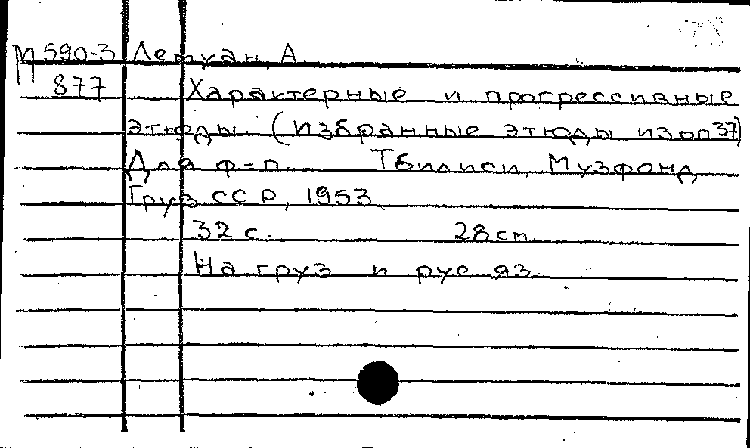 М 590-3 Лемуан, А
877 Характерные и прогрессивные
этюды. (Избранные этюды из оп 37)
Для ф-п. Тбилиси, Музфонд
Груз ССР, 1953
32 с. 28 см
На груз и рус яз.